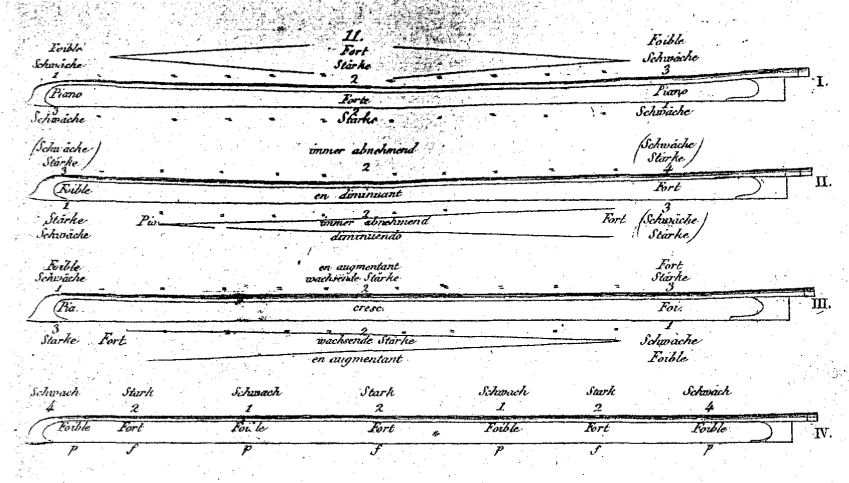 11.
Foible Fort Foible
Schwäche Stärke Schwäche
1 2 3
Piano Forte Piano I.
3 2 1
Schwäche Stärke Schwäche
(Schwäche immer abnehmend (Schwäche
Stärke) Stärke)
3 2 4
Foible en diminuant Fort II.
1 2 3
Stärke Pia. immer abnehmend Fort (Schwäche
Schwäche diminuendo Stärke)
Foible en augmentant Fort
Schwäche wachsende Stärke Stärke
1 2 3
Pia. cresc. Foi. III.
3 2 1
Starke Fort. wachsende Stärke Schwäche
en augmentant Foible
Schwach Stark Schwach Stark Schwach Stark Schwäch
4 2 1 2 1 2 4
Foible Fort Foible Fort Foible Fort Foible IV.
p f p f p f p